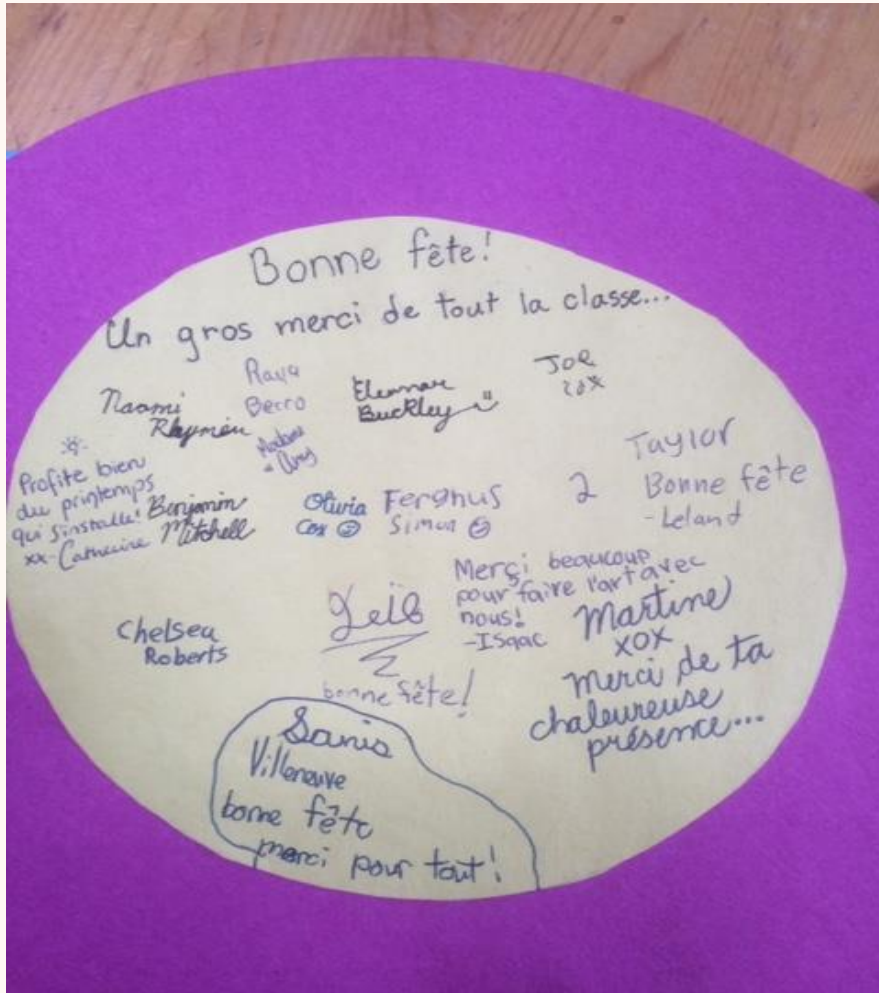 Bonne fête!
Un gros merci de tout la classe...
Naomi
Raya
Berro
Eleanor
Buckley
Joe
xox
Madame
Profite bien
du printemps
qui s'installe!
xx-Catherine
Benjamin
Mitchell
Olivia
Cox
Ferghus
Simon
2
Taylor
Bonne fête
-Leland
Chelsea
Roberts
bonne fête!
Merçi beaucoup
pour faire l'art avec
nous!
-Isaac
Martine
XOX
Merci de ta
chaleureuse
présence...
Villeneuve
bonne fête
merci pour tout!